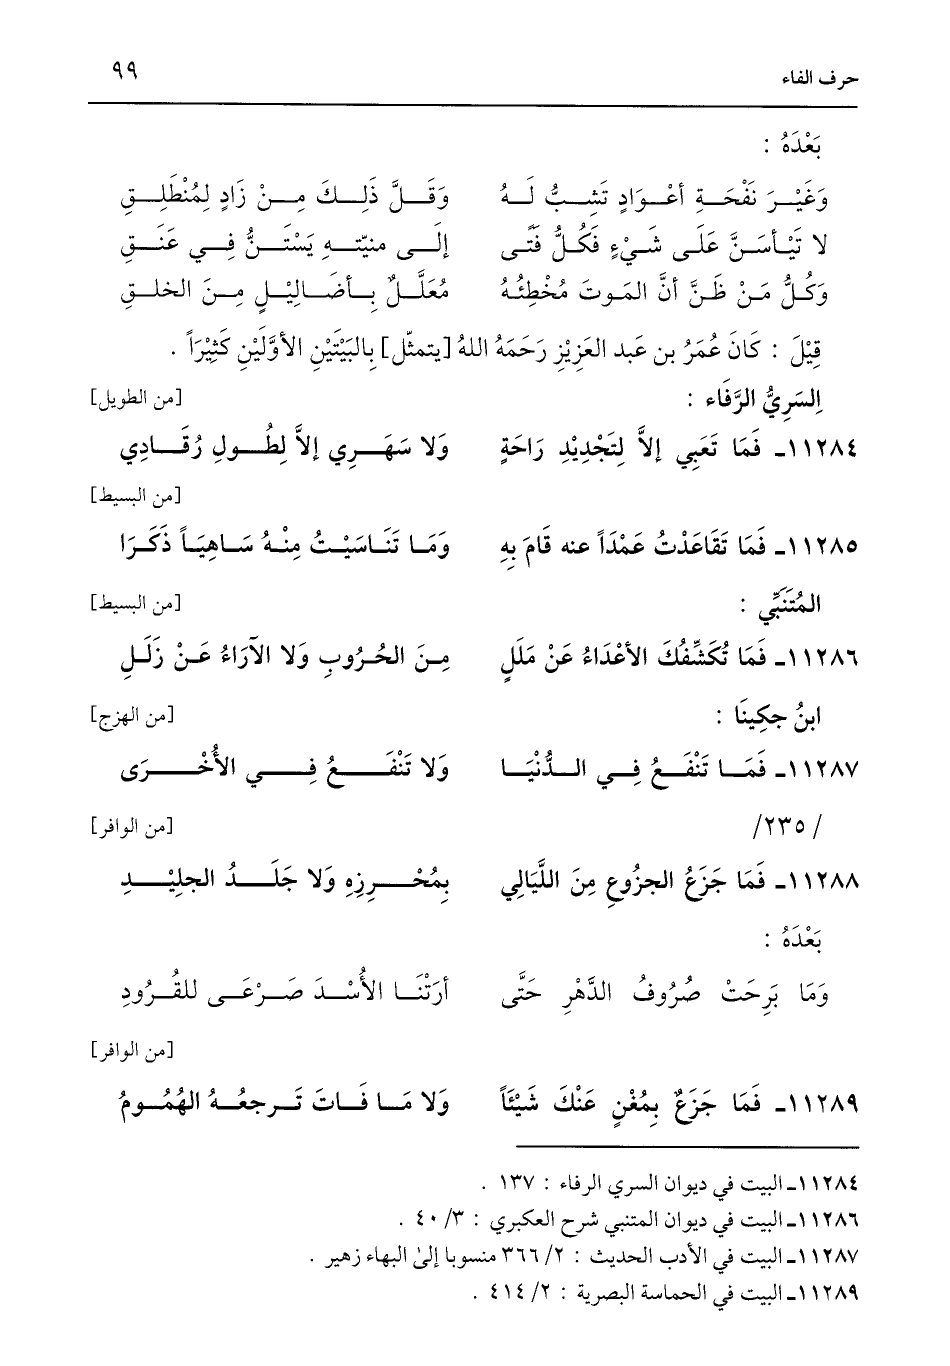 حرف الفاء ٩٩
بَعْدَهُ :
وَغَيْرَ نَفْحَةِ أعْوَادٍ تَشِبُّ لَهُ وَقَلَّ ذَلِكَ مِنْ زَادٍ لِمُنْطَلِقِ
لا تَيْأسَنَّ عَلَى شَيْءٍ فَكُلُّ فَتًى إلَى منيّتهِ يَسْتَنُّ فِي عَنَقِ
وَكُلُّ مَنْ ظَنَّ أنَّ المَوتَ مُخْطِئُهُ مُعَلَّلٌ بِأضَالِيْلٍ مِنَ الخلقِ
قِيْلَ : كَانَ عُمَرُ بن عَبد العَزِيْزِ رَحَمَهُ اللهُ [يتمثّل] بِالبَيْتَيْنِ الأوَّلَيْنِ كَثِيْرَاً .
السَرِيُّ الرَّفَاء : [من الطويل]
١١٢٨٤ـ فَمَا تَعَبِي إلاَّ لِتَجْدِيْدِ رَاحَةٍ وَلا سَهَرِي إلاَّ لِطُولِ رُقَادِي
[من البسيط]
١١٢٨٥ـ فَمَا تَقَاعَدْتُ عَمْدَاً عنه قَامَ بِهِ وَمَا تَنَاسَيْتُ مِنْهُ سَاهِيَاً ذَكَرَا
المُتَنَبِّي : [من البسيط]
١١٢٨٦ـ فَمَا تُكَشِّفُكَ الأعْدَاءُ عَنْ مَلَلٍ مِنَ الحُرُوبِ وَلا الآرَاءُ عَنْ زَلَلِ
ابنُ جكِينَا : [من الهزج]
١١٢٨٧ـ فَمَا تَنْفَعُ فِي الدُّنْيَا وَلا تَنْفَعُ فِي الأُخْرَى
/٢٣٥/ [من الوافر]
١١٢٨٨ـ فَمَا جَزَعُ الجزُوعِ مِنَ اللَّيَالِي بِمُحْرِزِهِ وَلا جَلَدُ الجلِيْدِ
بَعْدَهُ :
وَمَا بَرِحَتْ صُرُوفُ الدَّهْرِ حَتَّى أرَتْنَا الأُسْدَ صَرْعَى للقُرُودِ
[من الوافر]
١١٢٨٩ـ فَمَا جَزَعٌ بِمُغْنٍ عَنْكَ شَيْئَاً وَلا مَا فَاتَ تَرجعُهُ الهُمُومُ
١١٢٨٤ـ البيت في ديوان السري الرفاء : ١٣٧ .
١١٢٨٦ـ البيت في ديوان المتنبي شرح العكبري : ٣/ ٤٠ .
١١٢٨٧ـ البيت في الأدب الحديث : ٢/ ٣٦٦ منسوبا إلىٰ البهاء زهير .
١١٢٨٩ـ البيت في الحماسة البصرية : ٢/ ٤١٤ .